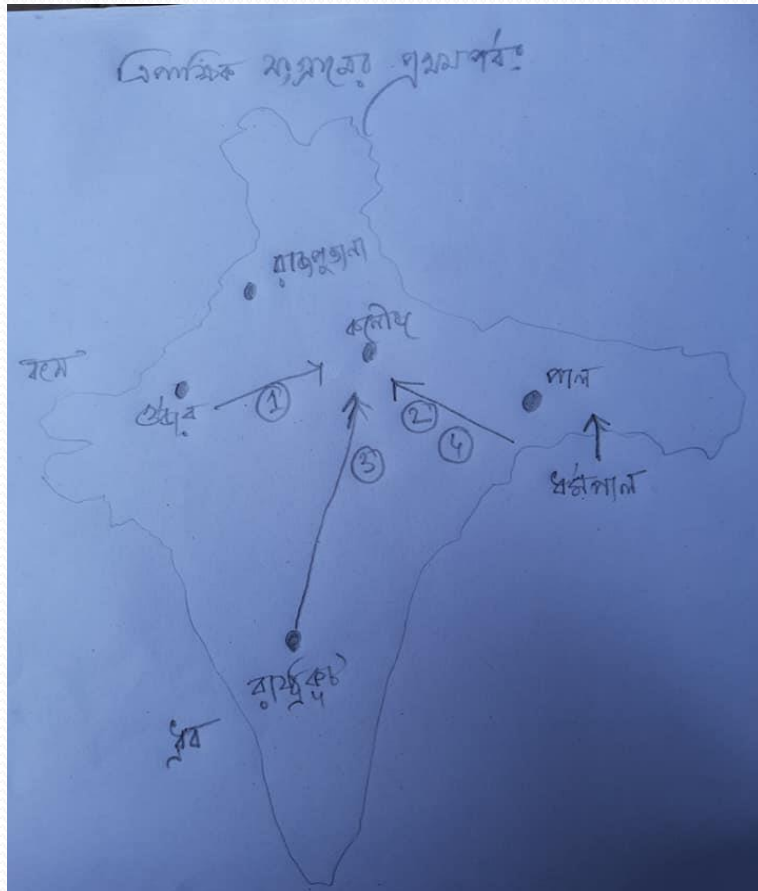 ত্রিপাক্ষিক সংগ্রামের প্রথমপর্বঃ
রাজপুতানা
কনৌজ
বৎস
গুর্জর
1
2
4
3
পাল
ধর্মপাল
রাষ্ট্রকূট
ধ্রুব